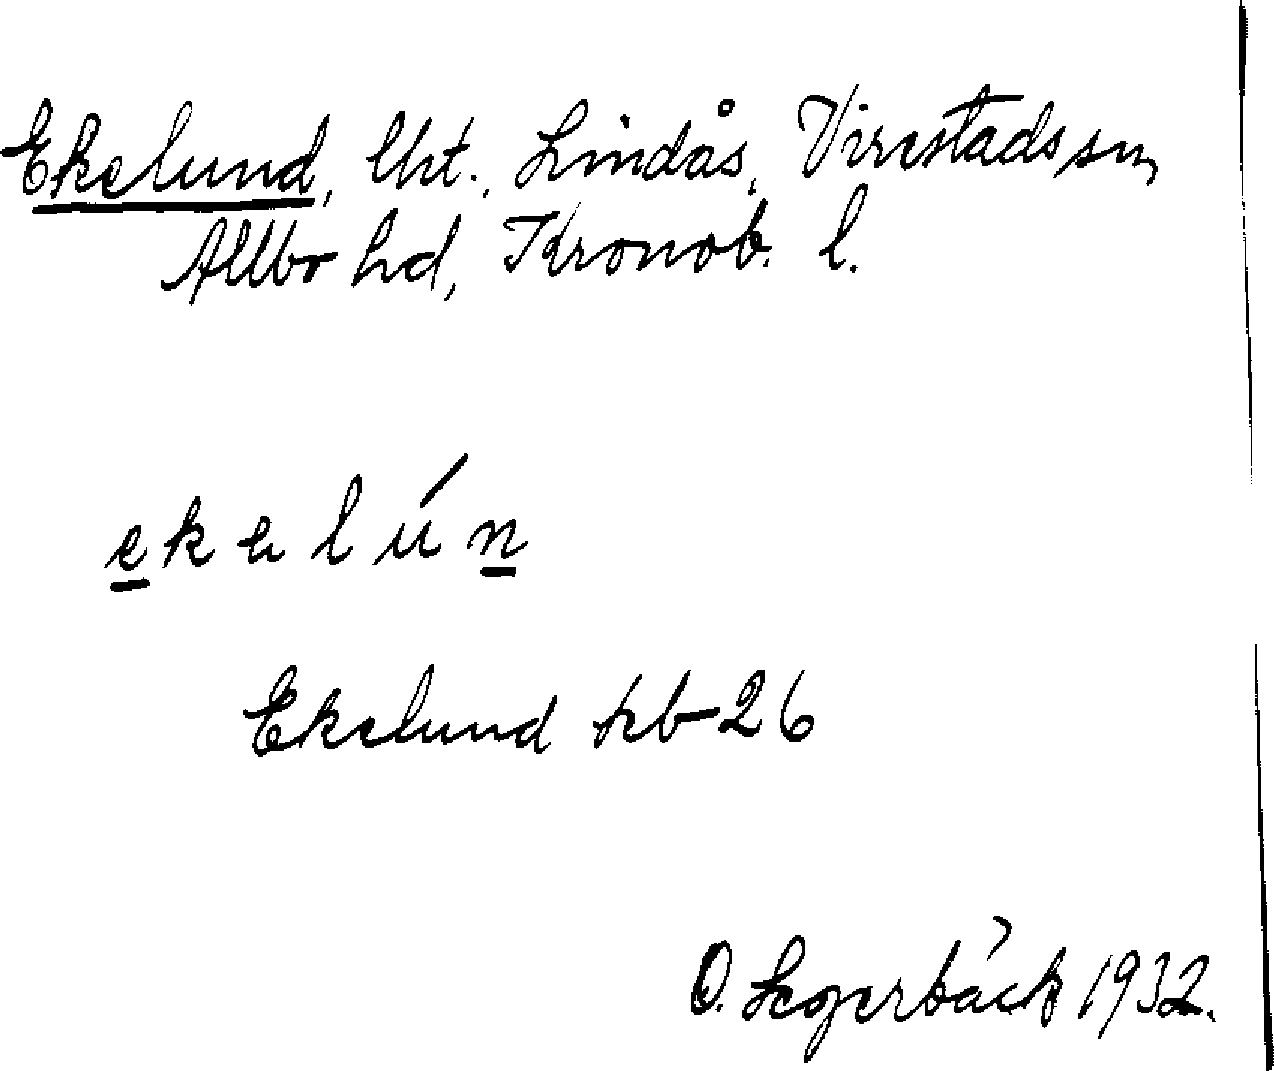 Ekelund, lht., Lindås, Virestads sn,
Allbo hd, Kronob. l.
e k e l ú n
Ekelund kb-26
O. Segerbäck 1932.